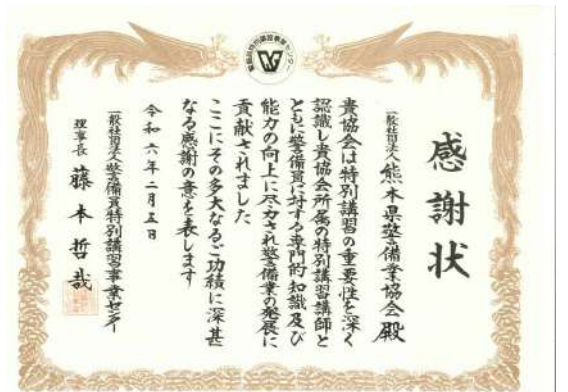 感謝状
一般社団法人熊本県警備業協会殿
貴協会は特別講習の重要性を深く
認識し貴協会所属の特別講習講師と
ともに警備員に対する専門的知識及び
能力の向上に尽力され警備業の発展に
貢献されました
ここにその多大なるご功績に深甚
なる感謝の意を表します
令和六年二月五日
一般社団法人警備員特別講習事業センター
理事長 藤本哲哉